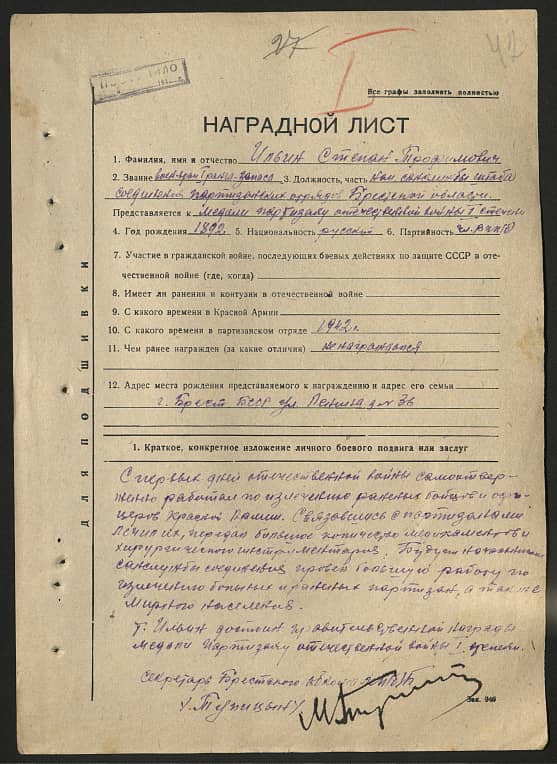 27
I
42
Все графы заполнять полностью
НАГРАДНОЙ ЛИСТ
1. Фамилия, имя и отчество Ильин Степан Трофимович
2. Звание запаса 3. Должность, часть нач санслужбы штаба
соединения партизанских отрядов Брестской области.
Представляется к медали партизану отечественной войны I степени
4. Год рождения 1892 5. Национальность русский 6. Партийность
7. Участие в гражданской войне, последующих боевых действиях по защите СССР в оте-
чественной войне (где, когда)
8. Имеет ли ранения и контузии в отечественной войне
9. С какого времени в Красной Армии
10. С какого времени в партизанском отряде 1942 г.
11. Чем ранее награжден (за какие отличия) не награждался
12. Адрес места рождения представляемого к награждению и адрес его семьи
г. Брест БССР ул. Ленина 36
ДЛЯ ПОДШИВКИ
1. Краткое, конкретное изложение личного боевого подвига или заслуг
С первых дней отечественной войны самоотвер-
женно работал по излечению раненых бойцов и офи-
церов Красной Армии. Связавшись с партизанами
лечил их, передал большое количество медикаментов и
хирургического инструментария. Будучи начальником
санслужбы соединения провел большую работу по
излечению больных и раненых партизан, а так же
мирного населения.
т. Ильин достоин правительственной награды
медали Партизану отечественной войны I степени.
Секретарь Брестского
Тупицын
Зак. 946